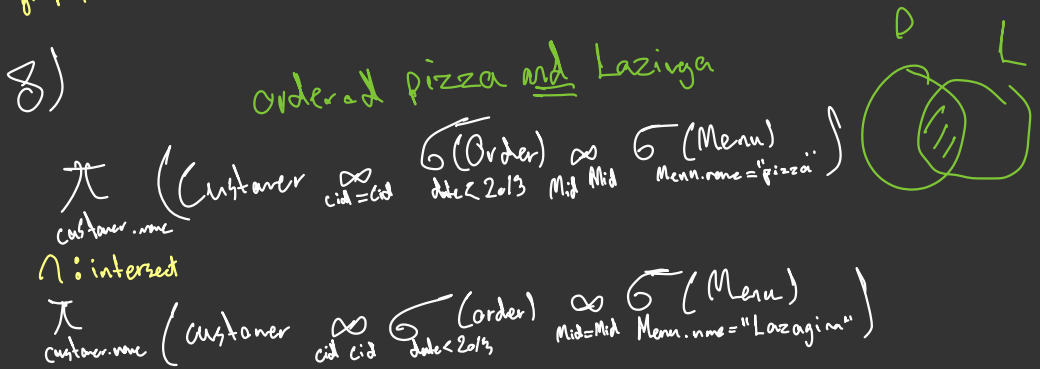 8)
ordered pizza and Lazinga
D L
π customer.name (Customer ∞ cid=cid σ date<2013 (Order) ∞ Mid Mid σ Menu.name="pizza" (Menu))
∩ : intersect
π customer.name (customer ∞ cid cid σ date<2013 (order) ∞ Mid=Mid σ Menu.name="Lazagina" (Menu))